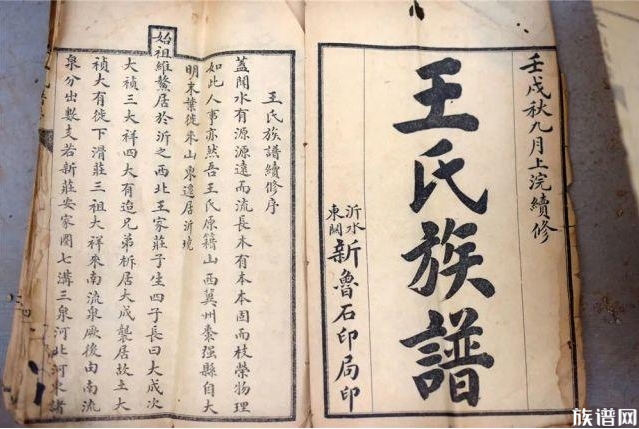 壬戌秋九月上浣續修
王氏族譜
沂水東關新魯石印局印
王氏族譜續修序
蓋聞水有源源遠而流長木有本本固而枝榮物理
如此人事亦然吾王氏原籍山西冀州棗强縣自大
明末葉徙來山東遂居沂境
始祖維鰲居於沂之西北王家莊子生四子長曰大成次
大禎三大祥四大有迨兄弟析居大成襲居故土大
禎大有徙下滑莊三祖大祥來南流泉厥後由南流
泉分出數支若新莊安家圈七溝三泉河北河東諸
族谱网